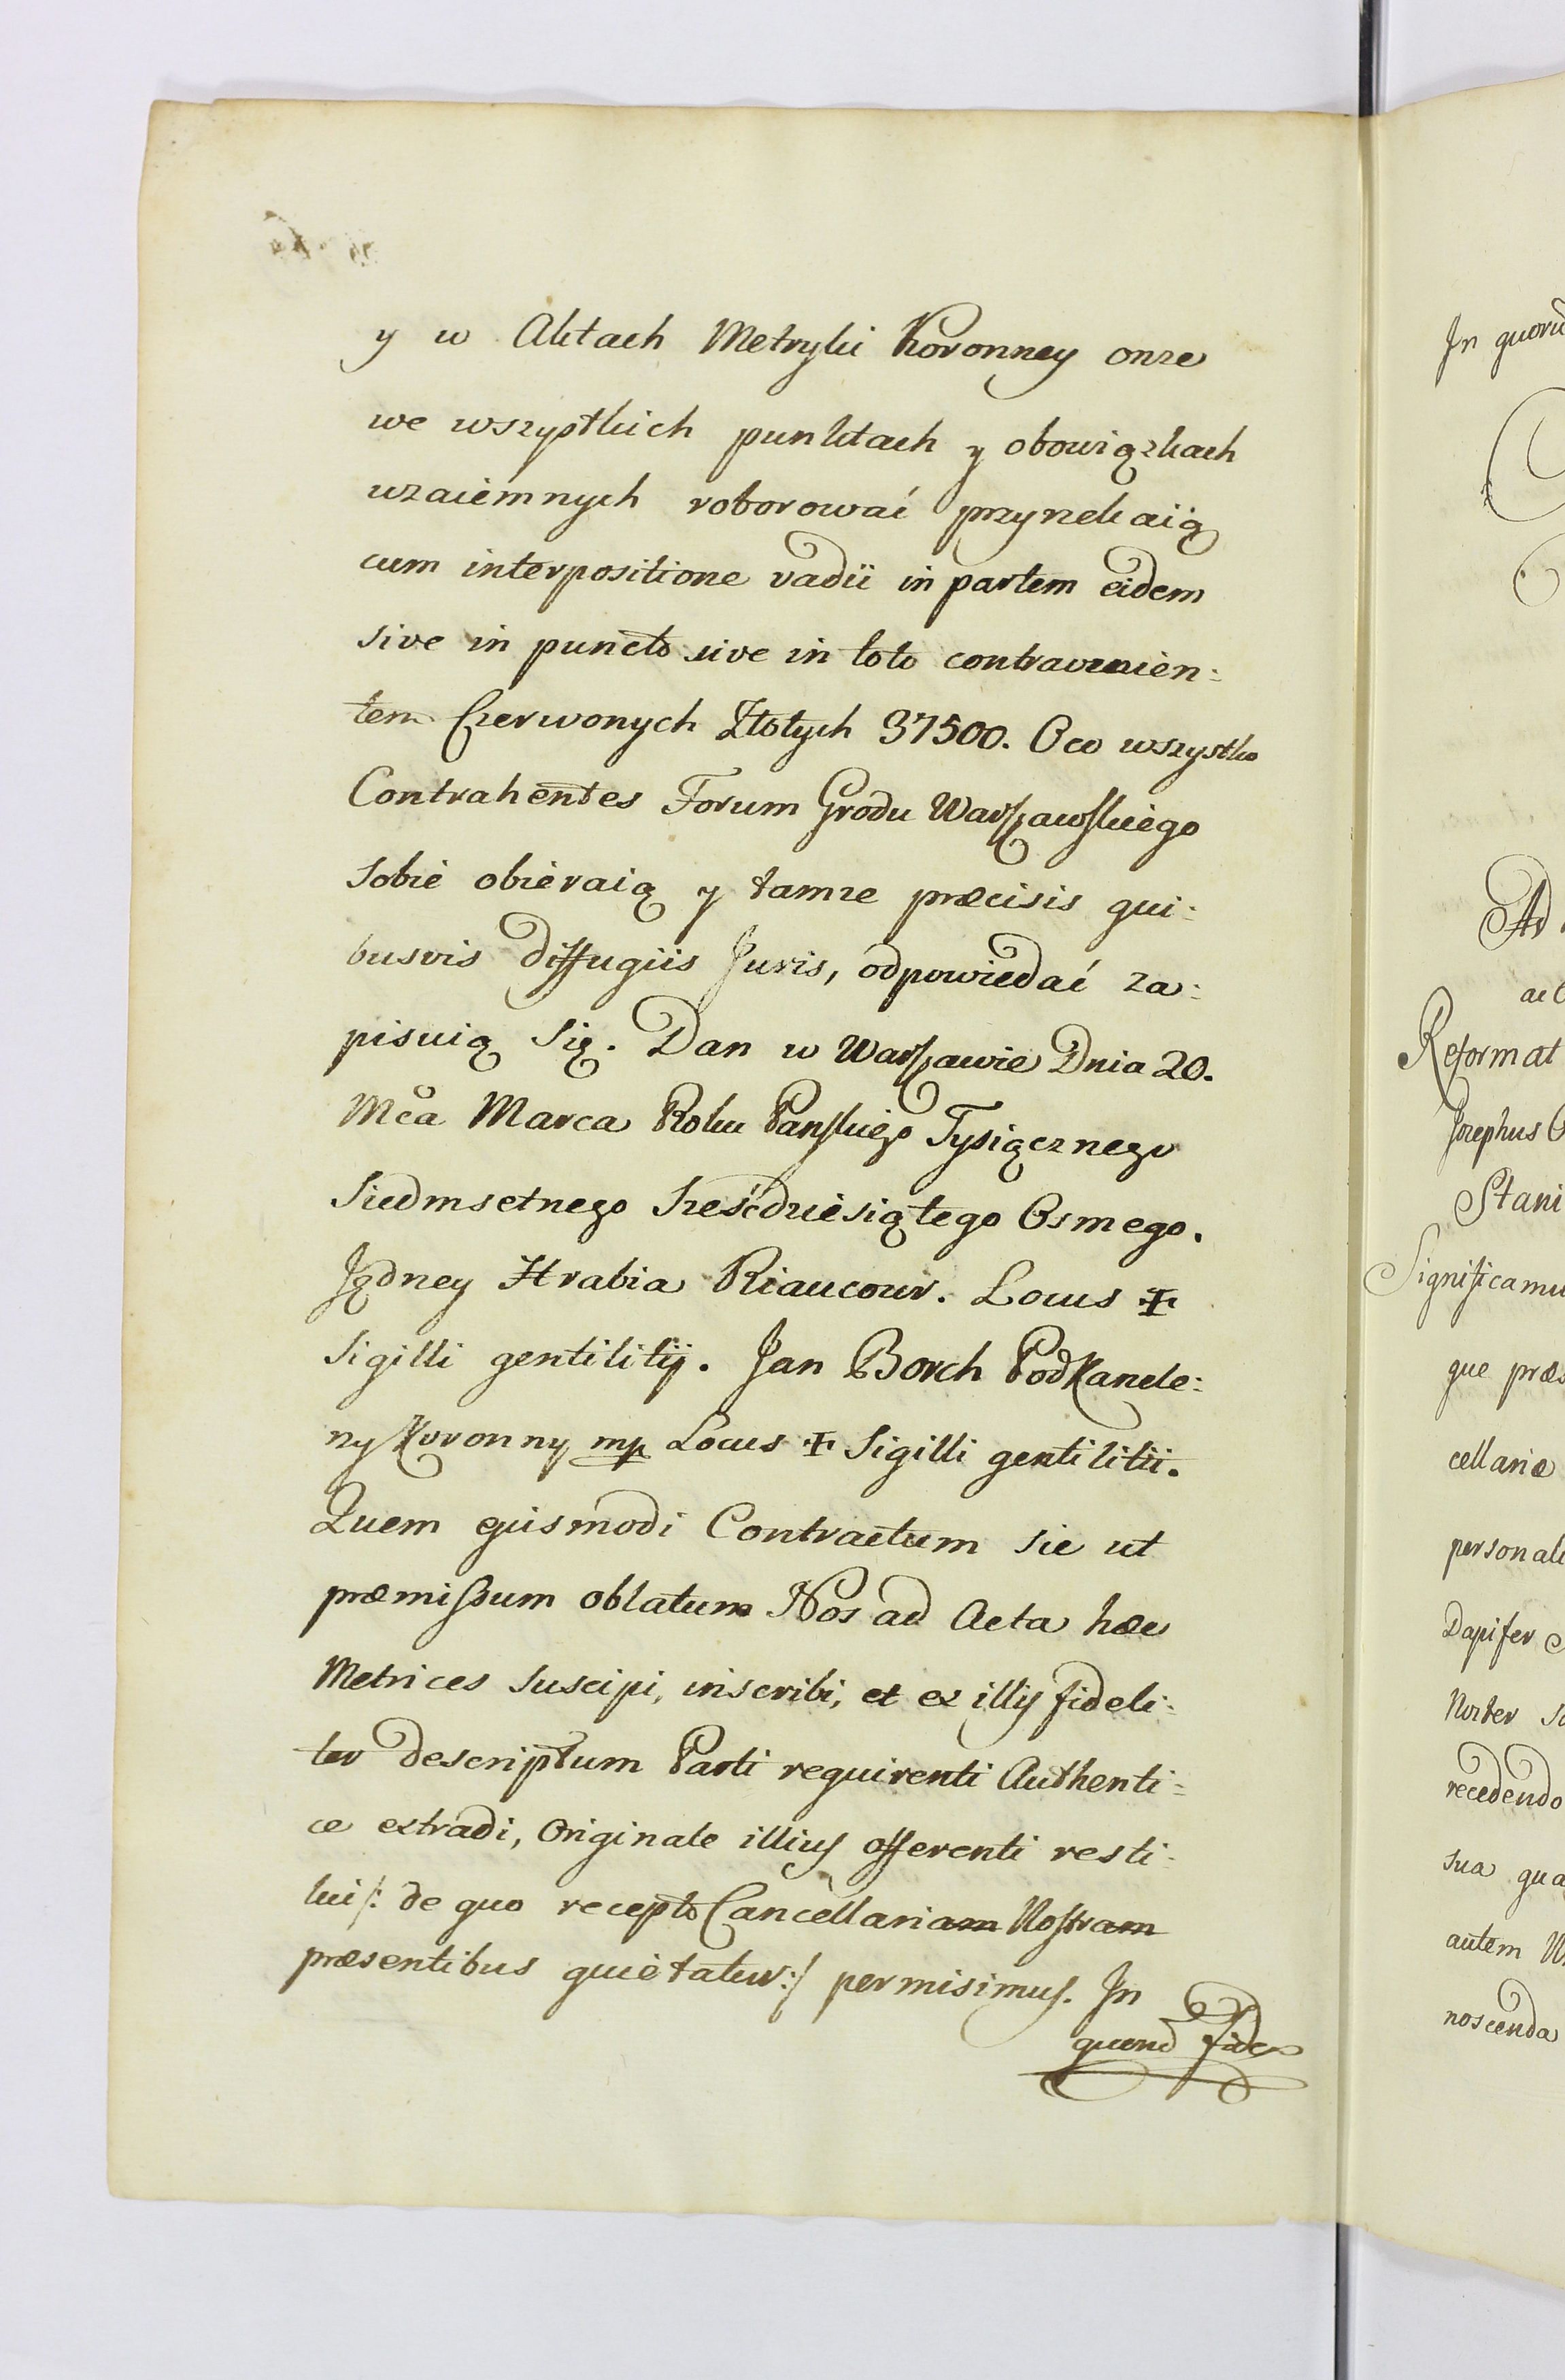 y w Aktach Metryki Koronney onze
we wszystkich punktach y obowiązkach
wzaiemnych roborować przyrzekaią
cum interpositione vadii in partem eidem
sive in puncto sive in toto contravenien:
tem Czerwonych Złotych 37500. O co wszystko
Contrahentes Forum Grodu Warszawskiego
sobie obieraią y tamże præcisis qui:
busvis diffugiis Juris, odpowiedać za:
pisuią się. Dan w Warszawie Dnia 20.
Mca Marca Roku Pańskiego Tysiącznego
Siedmsetnego Sześćdziesiątego Osmego.
Jędrzey Hrabia Riaucour. Locus ✠
Sigilli gentilitij. Jan Borch Podkancle:
rzy Koronny mp Locus ✠ Sigilli gentilitii.
Quem ejusmodi Contractum sic ut
præmissum oblatum Nos ad Acta hæc
Metrices suscipi, inscribi, et ex illis fideli:
ter descriptum Parti requirenti Authenti:
ce extradi, Originale illius offerenti resti:
tui /: de quo recepto Cancellariam Nostram
præsentibus quietatur :/ permisimus. In
quorũ fidẽ
In quorũ
Ad
Reformat
Josephus
Stani
Significamu
que præs
cellariæ
personali
Dapifer
Noster
recedendo
sua qua
autem
noscenda